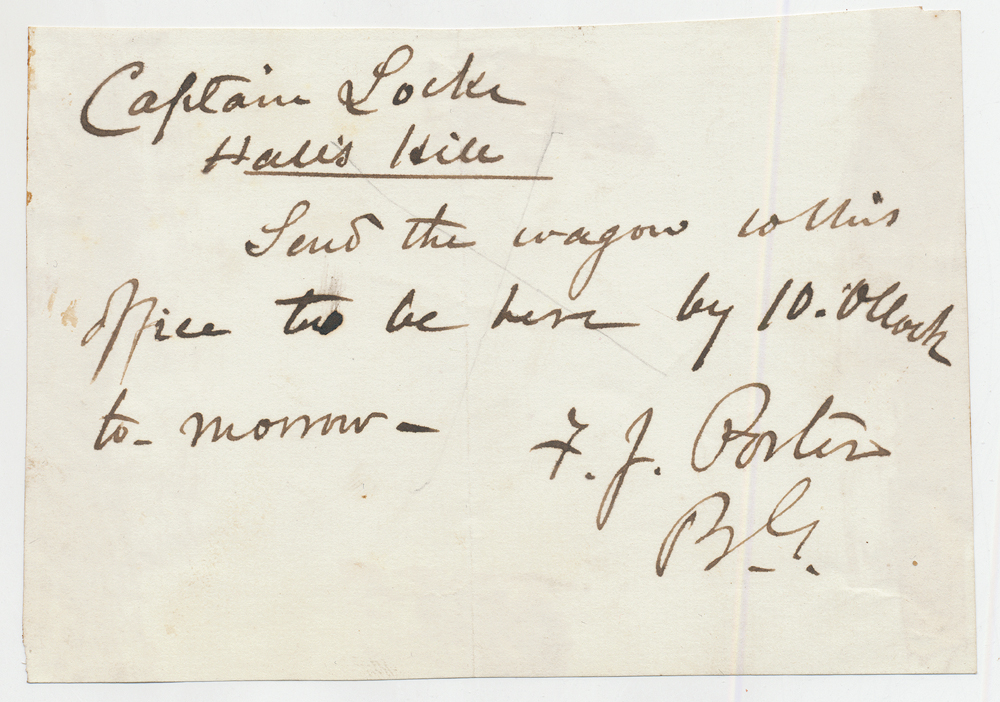 Captain Locke
Hall's Hill
Send the wagon to this
office to be here by 10. O'Clock
to-morrow-
F. J. Porter
B.G.